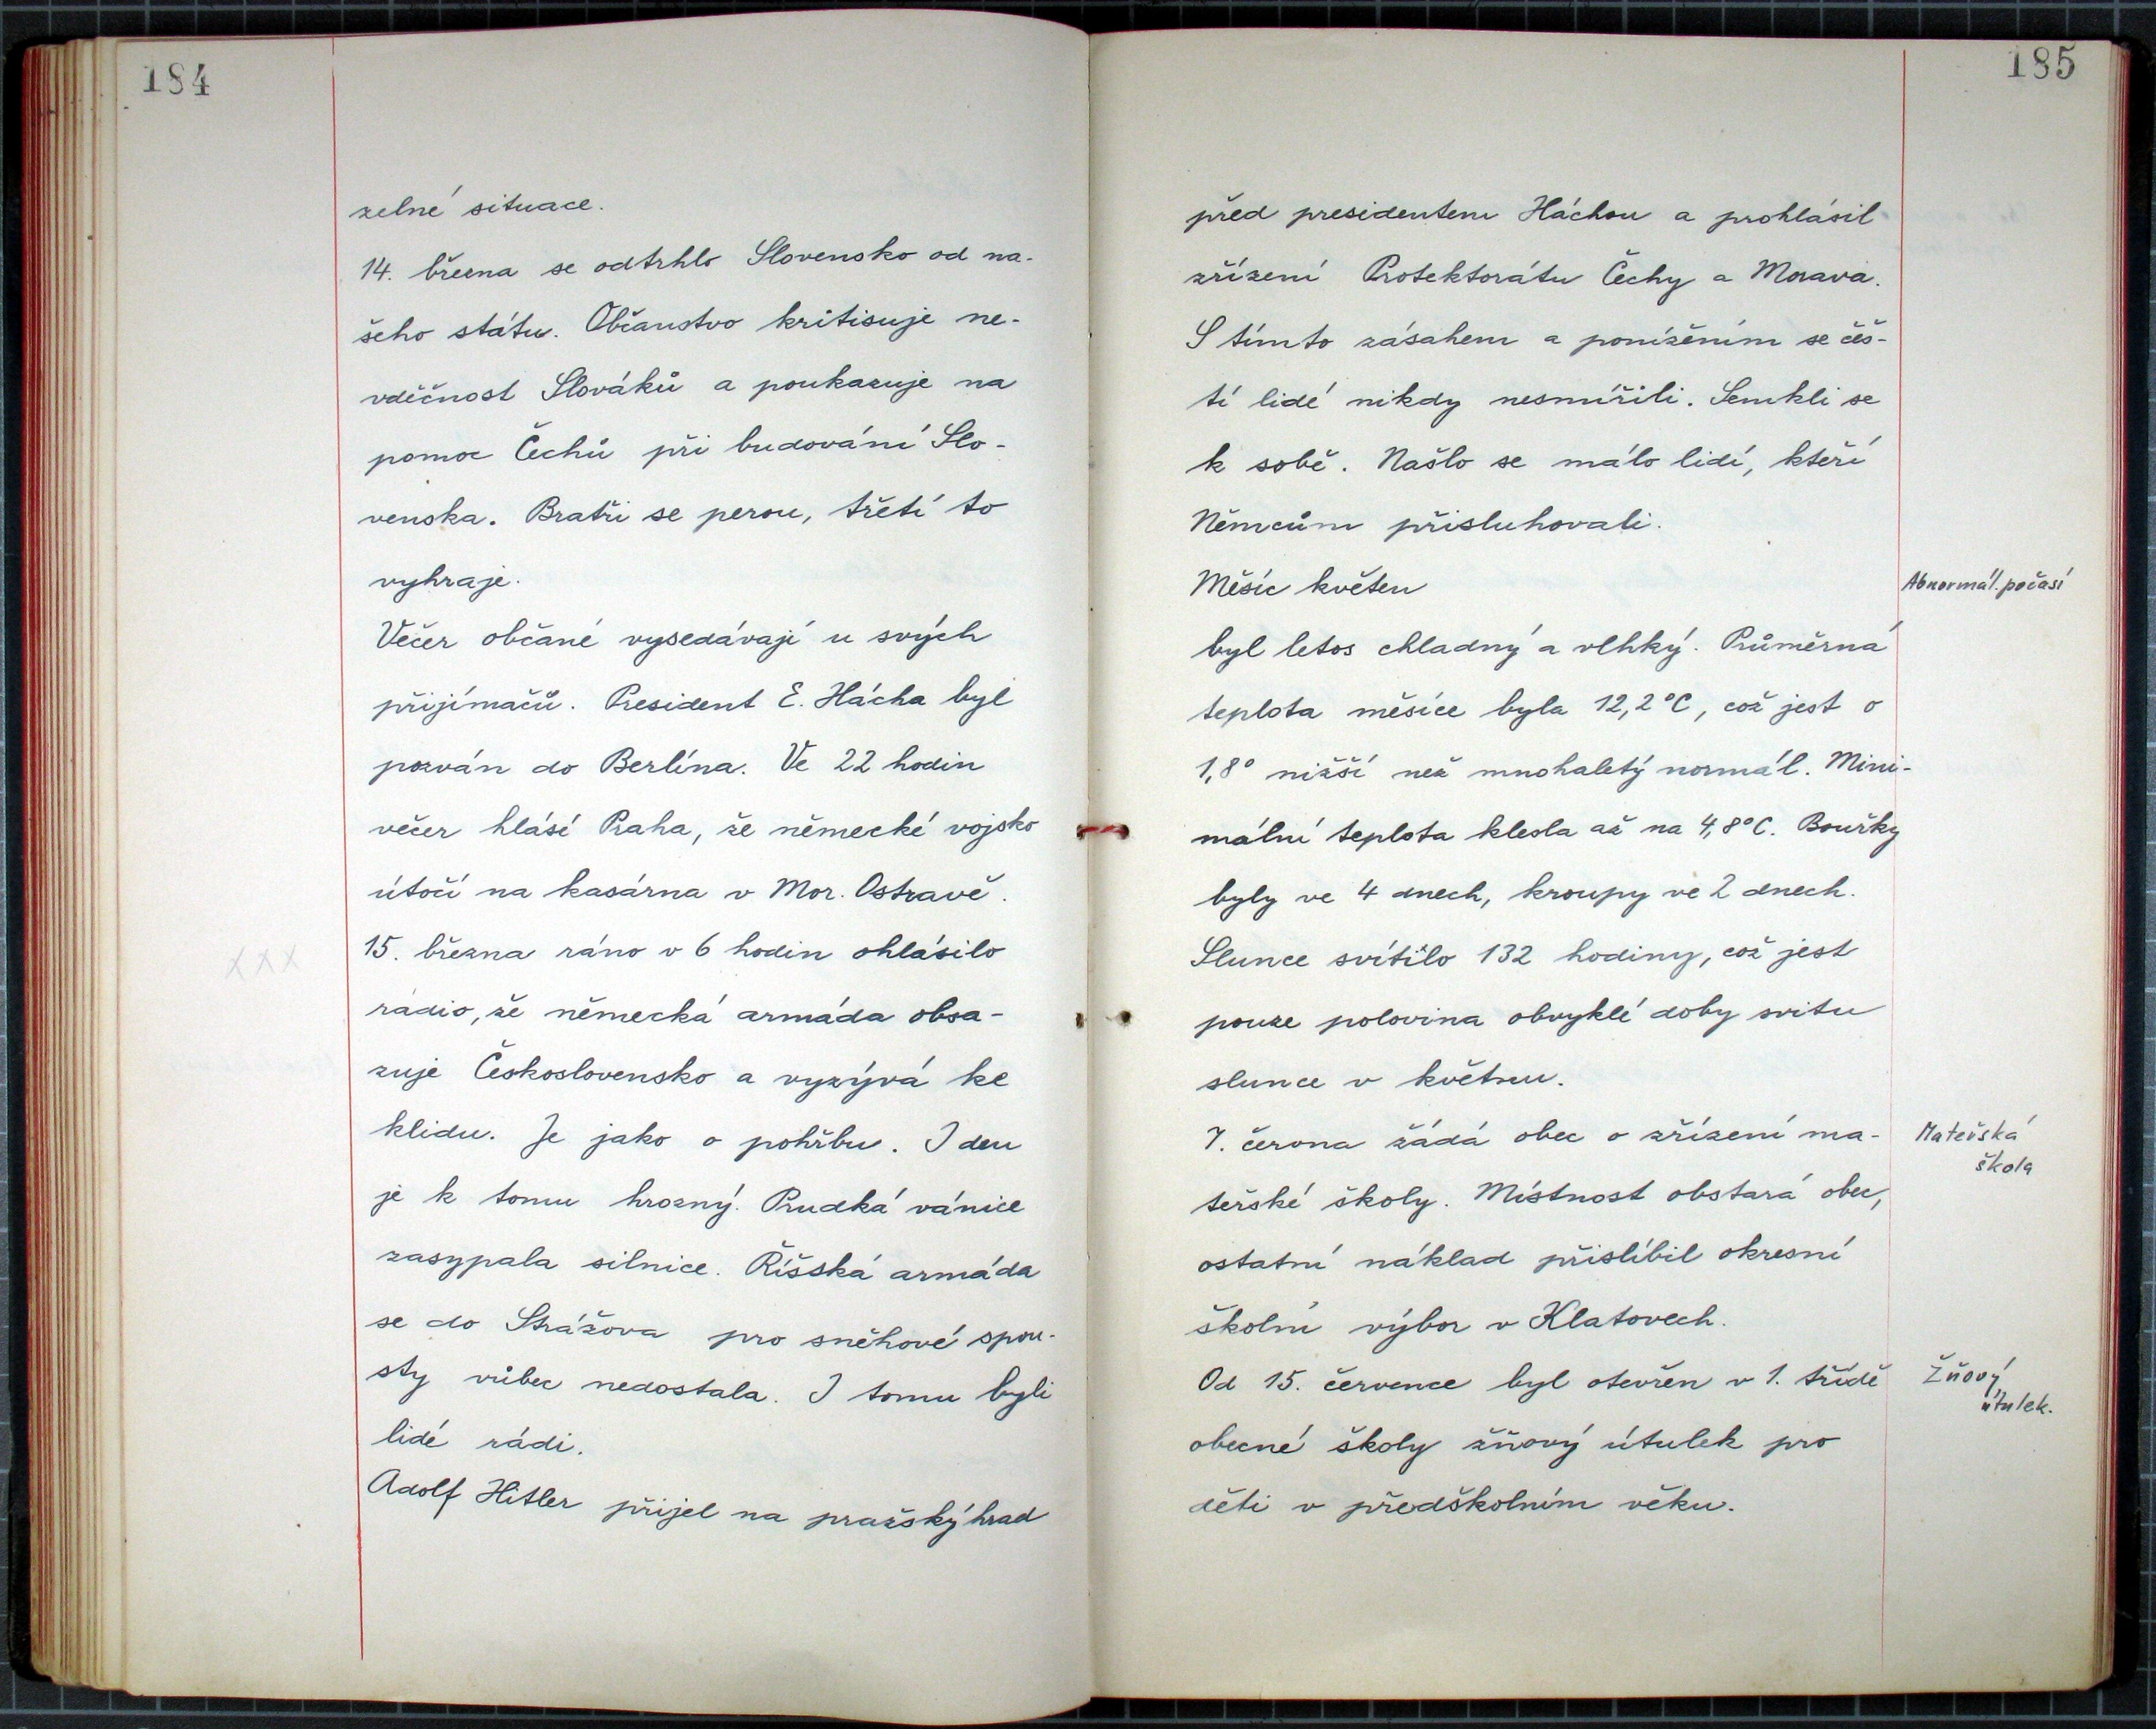 184
zelné situace.
14. března se odtrhlo Slovensko od na-
šeho státu. Občanstvo kritisuje ne-
vděčnost Slováků a poukazuje na
pomoc Čechů při budování Slo-
venska. Bratři se perou, třetí to
vyhraje.
Večer občané vysedávají u svých
přijímačů. President E. Hácha byl
pozván do Berlína. Ve 22 hodin
večer hlásí Praha, že německé vojsko
útočí na kasárna v Mor. Ostravě.
XXX
15. března ráno v 6 hodin ohlásilo
rádio, že německá armáda obsa-
zuje Československo a vyzývá ke
klidu. Je jako o pohřbu. I den
je k tomu hrozný. Prudká vánice
zasypala silnice. Říšská armáda
se do Strážova pro sněhové spou-
sty vůbec nedostala. I tomu byli
lidé rádi.
Adolf Hitler přijel na pražský hrad
185
před presidentem Háchou a prohlásil
zřízení Protektorátu Čechy a Morava.
S tímto zásahem a ponížěním se češ-
tí lidé nikdy nesmířili. Semkli se
k sobě. Našlo se málo lidí, kteří
Němcům přisluhovali.
Měsíc květen
Abnormál. počasí
byl letos chladný a vlhký. Průměrná
teplota měsíce byla 12,2°C, což jest o
1,8° nižší než mnohaletý normál. Mini-
mální teplota klesla až na 4,8°C. Bouřky
byly ve 4 dnech, kroupy ve 2 dnech.
Slunce svítilo 132 hodiny, což jest
pouze polovina obvyklé doby svitu
slunce v květnu.
7. června žádá obec o zřízení ma-
Mateřská
škola
teřské školy. Místnost obstará obec,
ostatní náklad přislíbil okresní
školní výbor v Klatovech.
Od 15. července byl otevřen v 1. třídě
Žňový
útulek.
obecné školy žňový útulek pro
děti v předškolním věku.